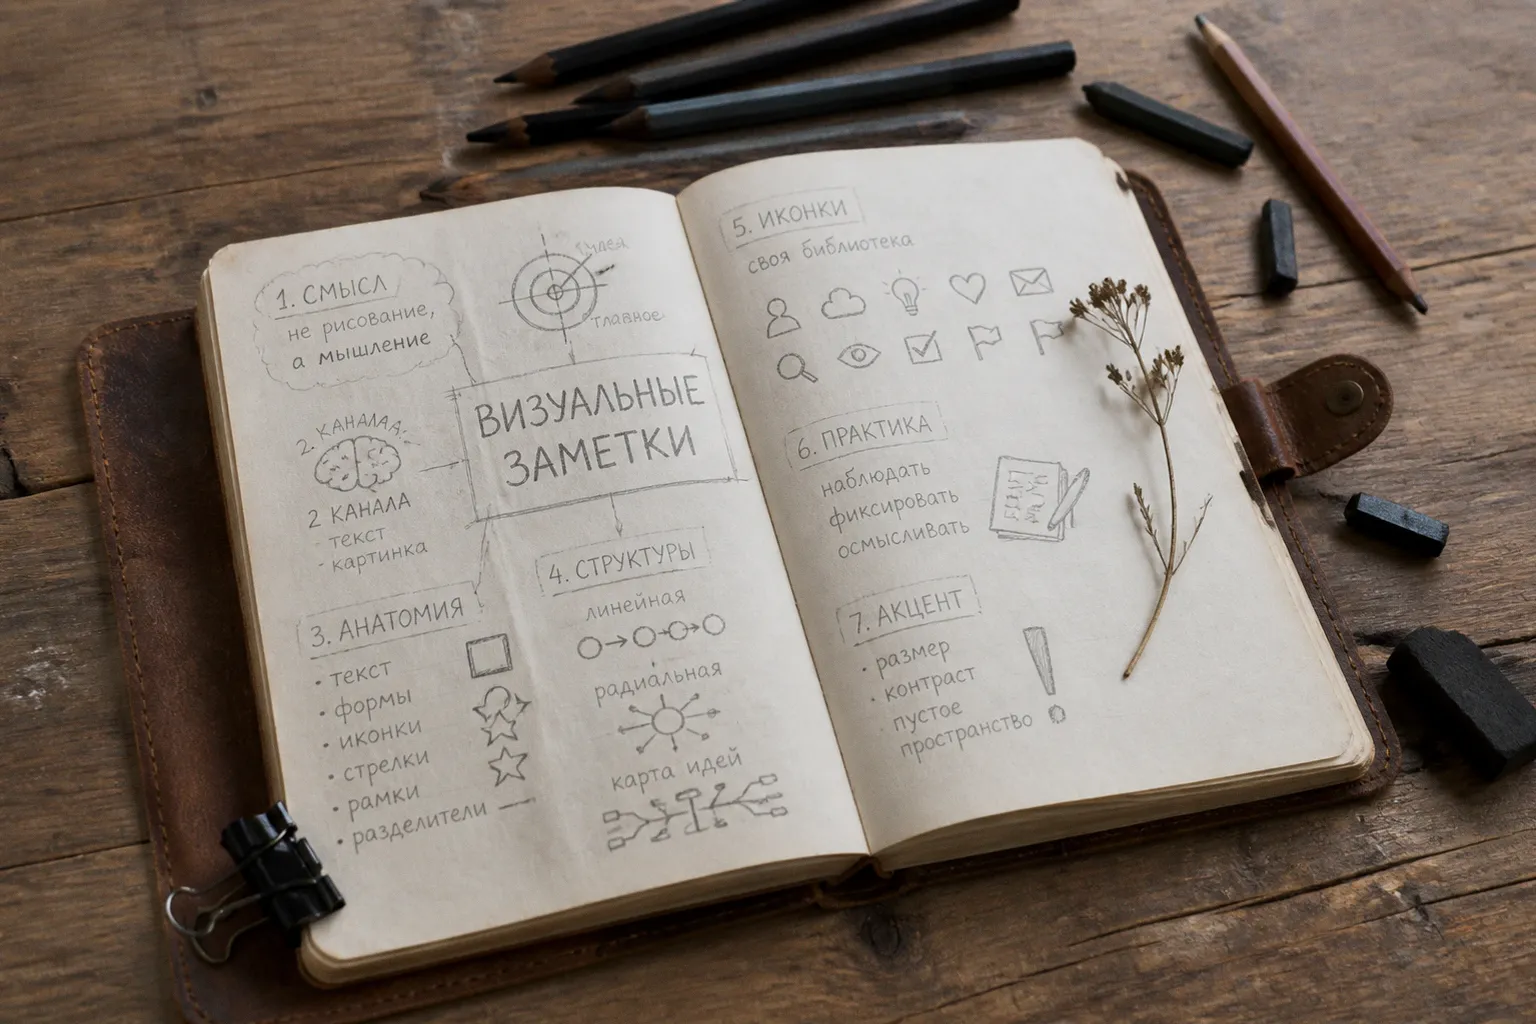 1. СМЫСЛ
не рисование,
а мышление
главное
ВИЗУАЛЬНЫЕ
ЗАМЕТКИ
2. КАНАЛА
2 КАНАЛА
- текст
- картинка
3. АНАТОМИЯ
• текст
• формы
• иконки
• стрелки
• рамки
• разделители
4. СТРУКТУРЫ
линейная
радиальная
карта идей
5. ИКОНКИ
своя библиотека
6. ПРАКТИКА
наблюдать
фиксировать
осмысливать
7. АКЦЕНТ
• размер
• контраст
• пустое
пространство
!